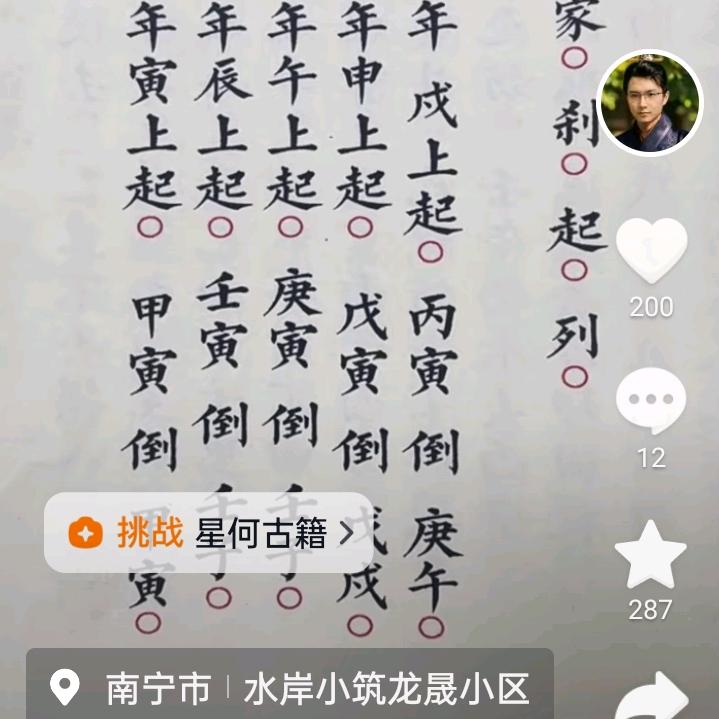 家○刹○起○列○
年戌上起○丙寅倒庚午○
年申上起○戊寅倒戌○
年午上起○庚寅倒○
年辰上起○壬寅倒○
年寅上起○甲寅倒甲寅○
200
12
挑战 星何古籍
287
南宁市 | 水岸小筑龙晟小区